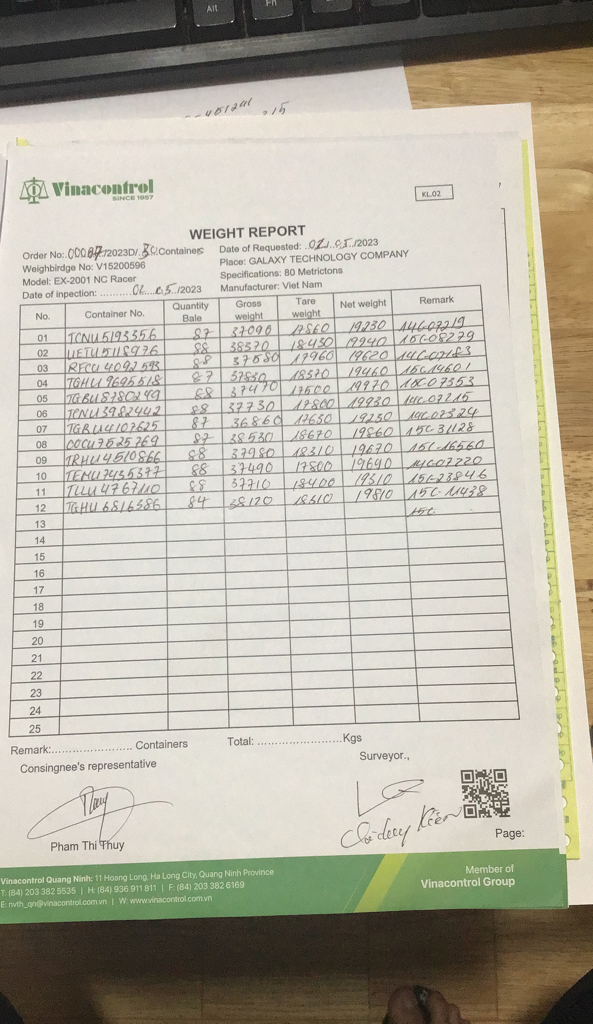 Alt
Fn
Vinacontrol
SINCE 1957
KL.02
WEIGHT REPORT
Order No: 2023D/ 30 Containers Date of Requested: 02/05/2023
Weighbirdge No: V15200596 Place: GALAXY TECHNOLOGY COMPANY
Model: EX-2001 NC Racer Specifications: 80 Metrictons
Date of inpection: 02 05/2023 Manufacturer: Viet Nam
No. Container No. Quantity Bale Gross weight Tare weight Net weight Remark
01 TCNU5193356 87 37090 17860 19230 14C-07219
02 UETU5118976 88 38370 18430 19940 15C-08279
03 RFCU4092593 88 37580 17960 19620 14C-07183
04 TGHU9695618 87 37830 18370 19460 15C-14601
05 TGBU8780249 88 37470 17500 19970 15C-07353
06 TCNU3982442 88 37730 17800 19930 14C-07215
07 TGBU4107625 87 36860 17650 19250 14C-07324
08 COCU7525769 87 38530 18670 19860 15C-31128
09 TRHU4510866 88 37980 18310 19670 15C-16560
10 TEMU7435377 88 37490 17800 19690 14C-07220
11 TLLU4767110 88 37710 18400 19310 15C-23846
12 TGHU6816586 84 38120 18310 19810 15C-11438
13 15C
14
15
16
17
18
19
20
21
22
23
24
25
Remark:....................... Containers Total: ........................Kgs
Consingnee's representative Surveyor.,
Pham Thi Thuy Page:
Vinacontrol Quang Ninh: 11 Hoang Long, Ha Long City, Quang Ninh Province
T: (84) 203 382 5535 | H: (84) 936 911 811 | F: (84) 203 382 6169
E: nvth_qn@vinacontrol.com.vn | W: www.vinacontrol.com.vn
Member of
Vinacontrol Group